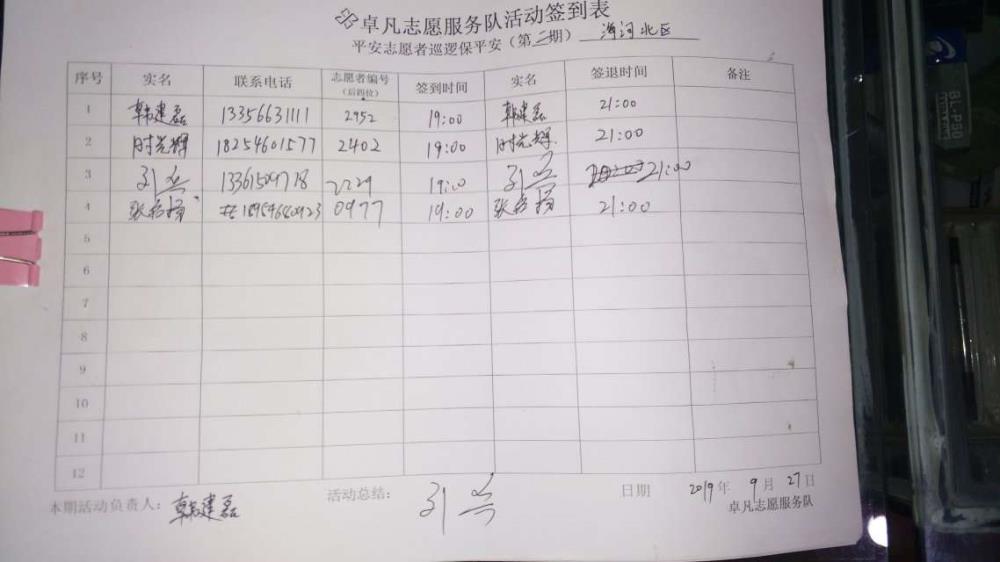 卓凡志愿服务队活动签到表
平安志愿者巡逻保平安（第二期） 洋河北区
序号 实名 联系电话 志愿者编号（后四位） 签到时间 实名 签退时间 备注
1 韩建磊 13356631111 2952 19:00 韩建磊 21:00
2 时光辉 18254601577 2402 19:00 时光辉 21:00
3 2229 19:00 21:00
4 0977 19:00 21:00
5
6
7
8
9
10
11
12
本期活动负责人：韩建磊 活动总结： 日期 2019年 9月 27日
卓凡志愿服务队
BL-P50